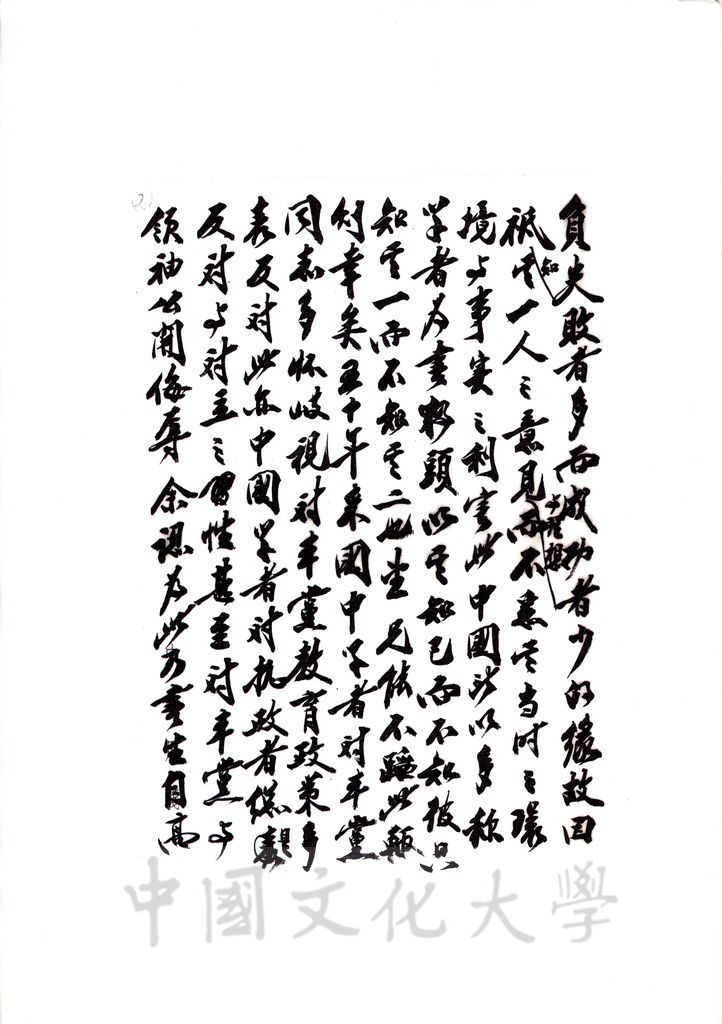 負失敗者多而成功者少的緣故因
祗知其一人之意見與理想而不悉其當時之環
境与事實之利害此中國所以多称
学者為書獃頭以其知己而不知彼只
知其一而不知其二也望兄能不蹈此轍
則幸矣五十年来國中学者對本黨
同志多怀岐視對本黨教育政策多
表反對此亦中國学者對执政者總是
反對与對立之習性甚至對本黨与
領袖公開侮辱余認為此乃書生自高
中國文化大學